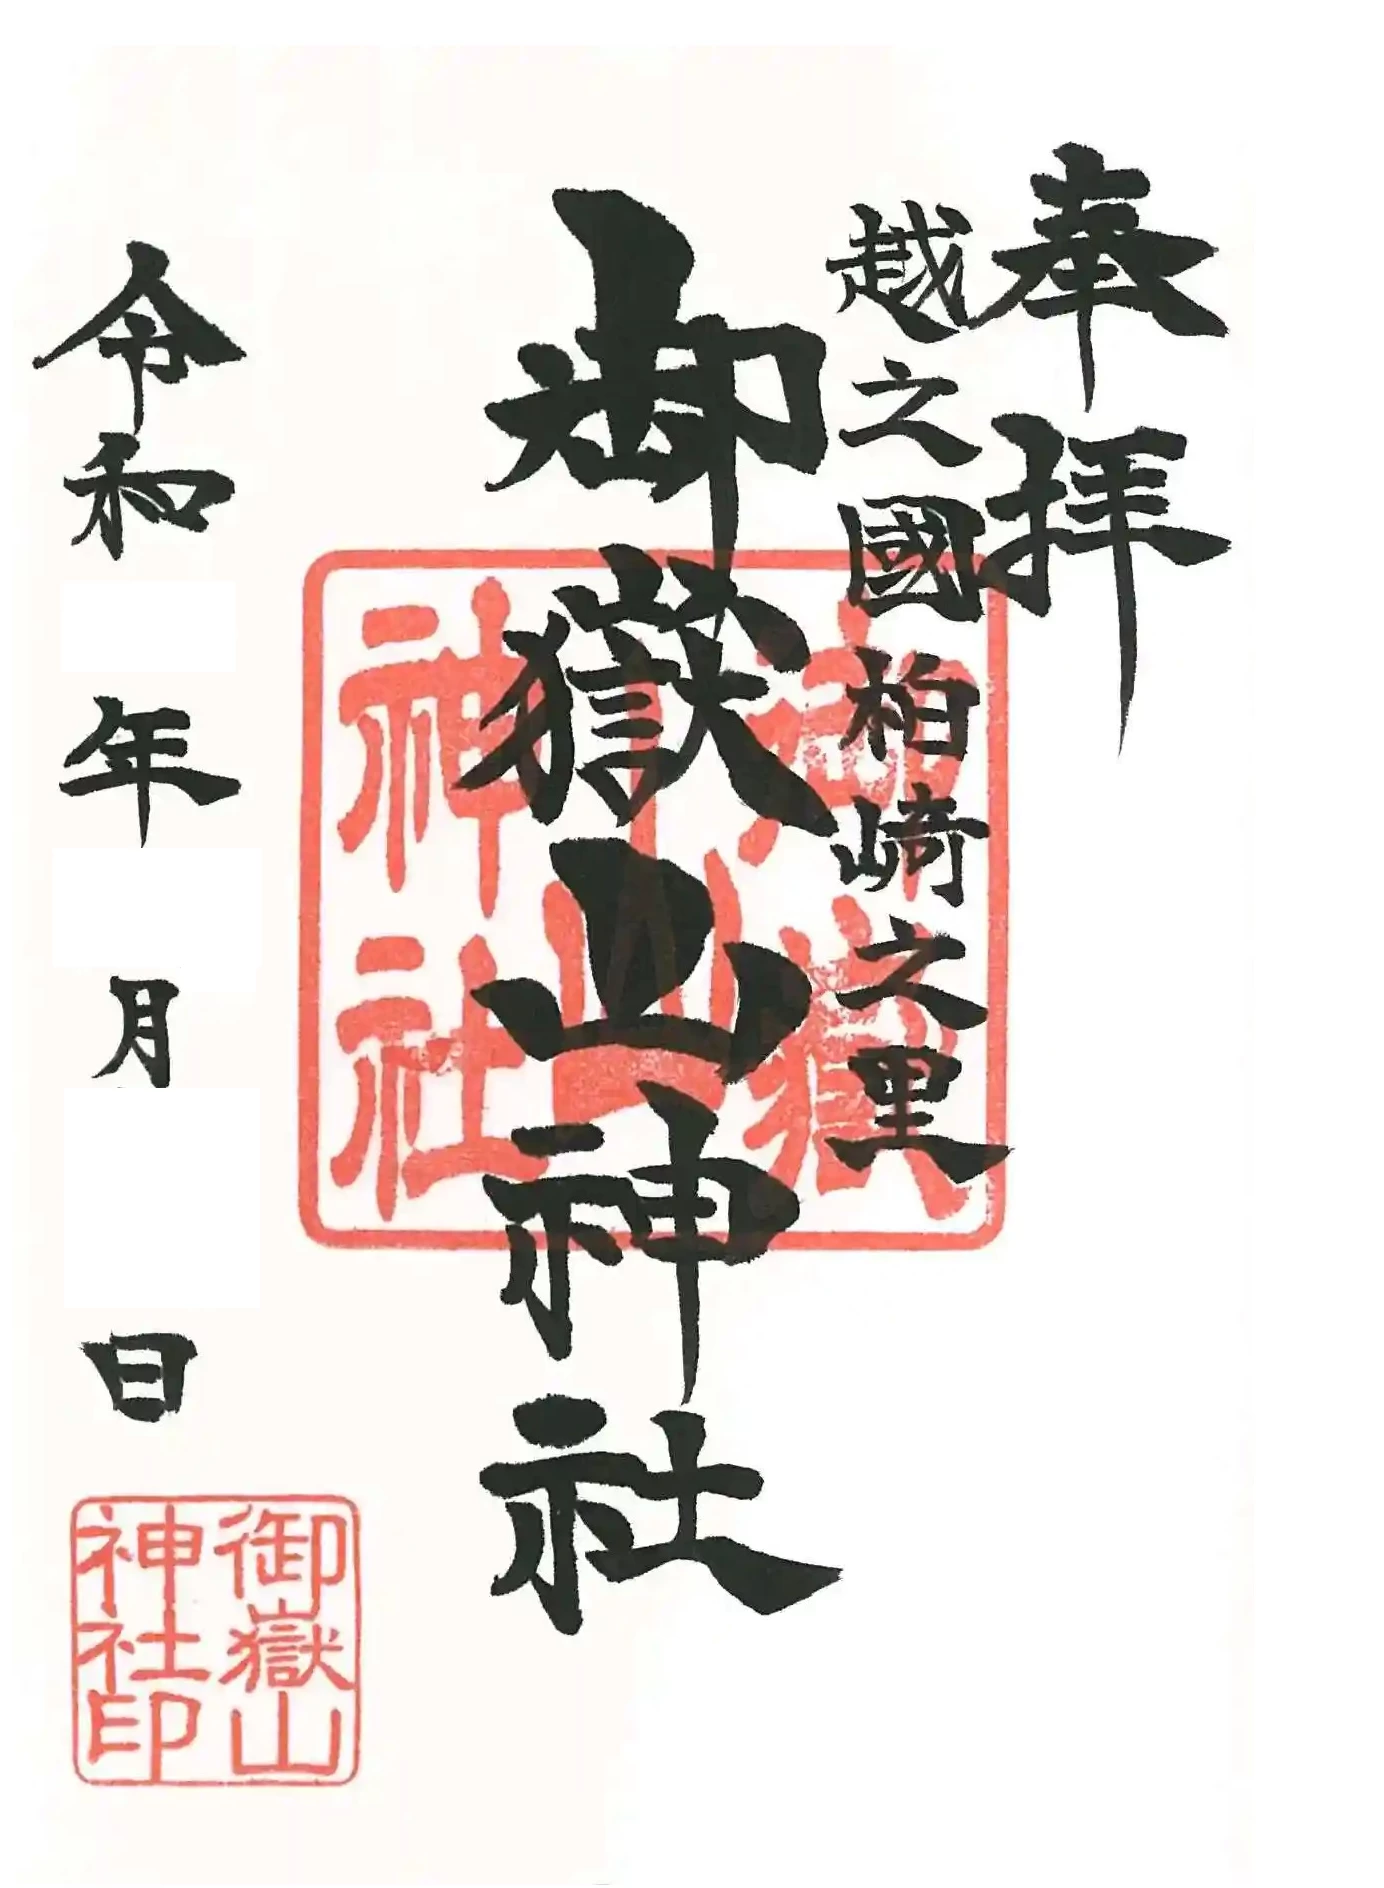 奉拝
越之國柏崎之里
御嶽山神社
御嶽
山
神社
令和 年 月 日
御嶽山
神社印